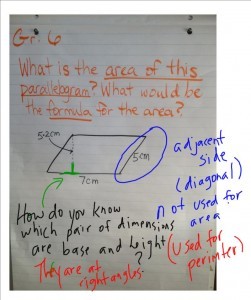 Gr. 6
What is the area of this
parallelogram? What would be
the formula for the area?
5.2cm
5cm
7cm
adjacent
side
(diagonal)
not used for
area
(used for
perimter)
How do you know
which pair of dimensions
are base and height
?
They are at
right angles.